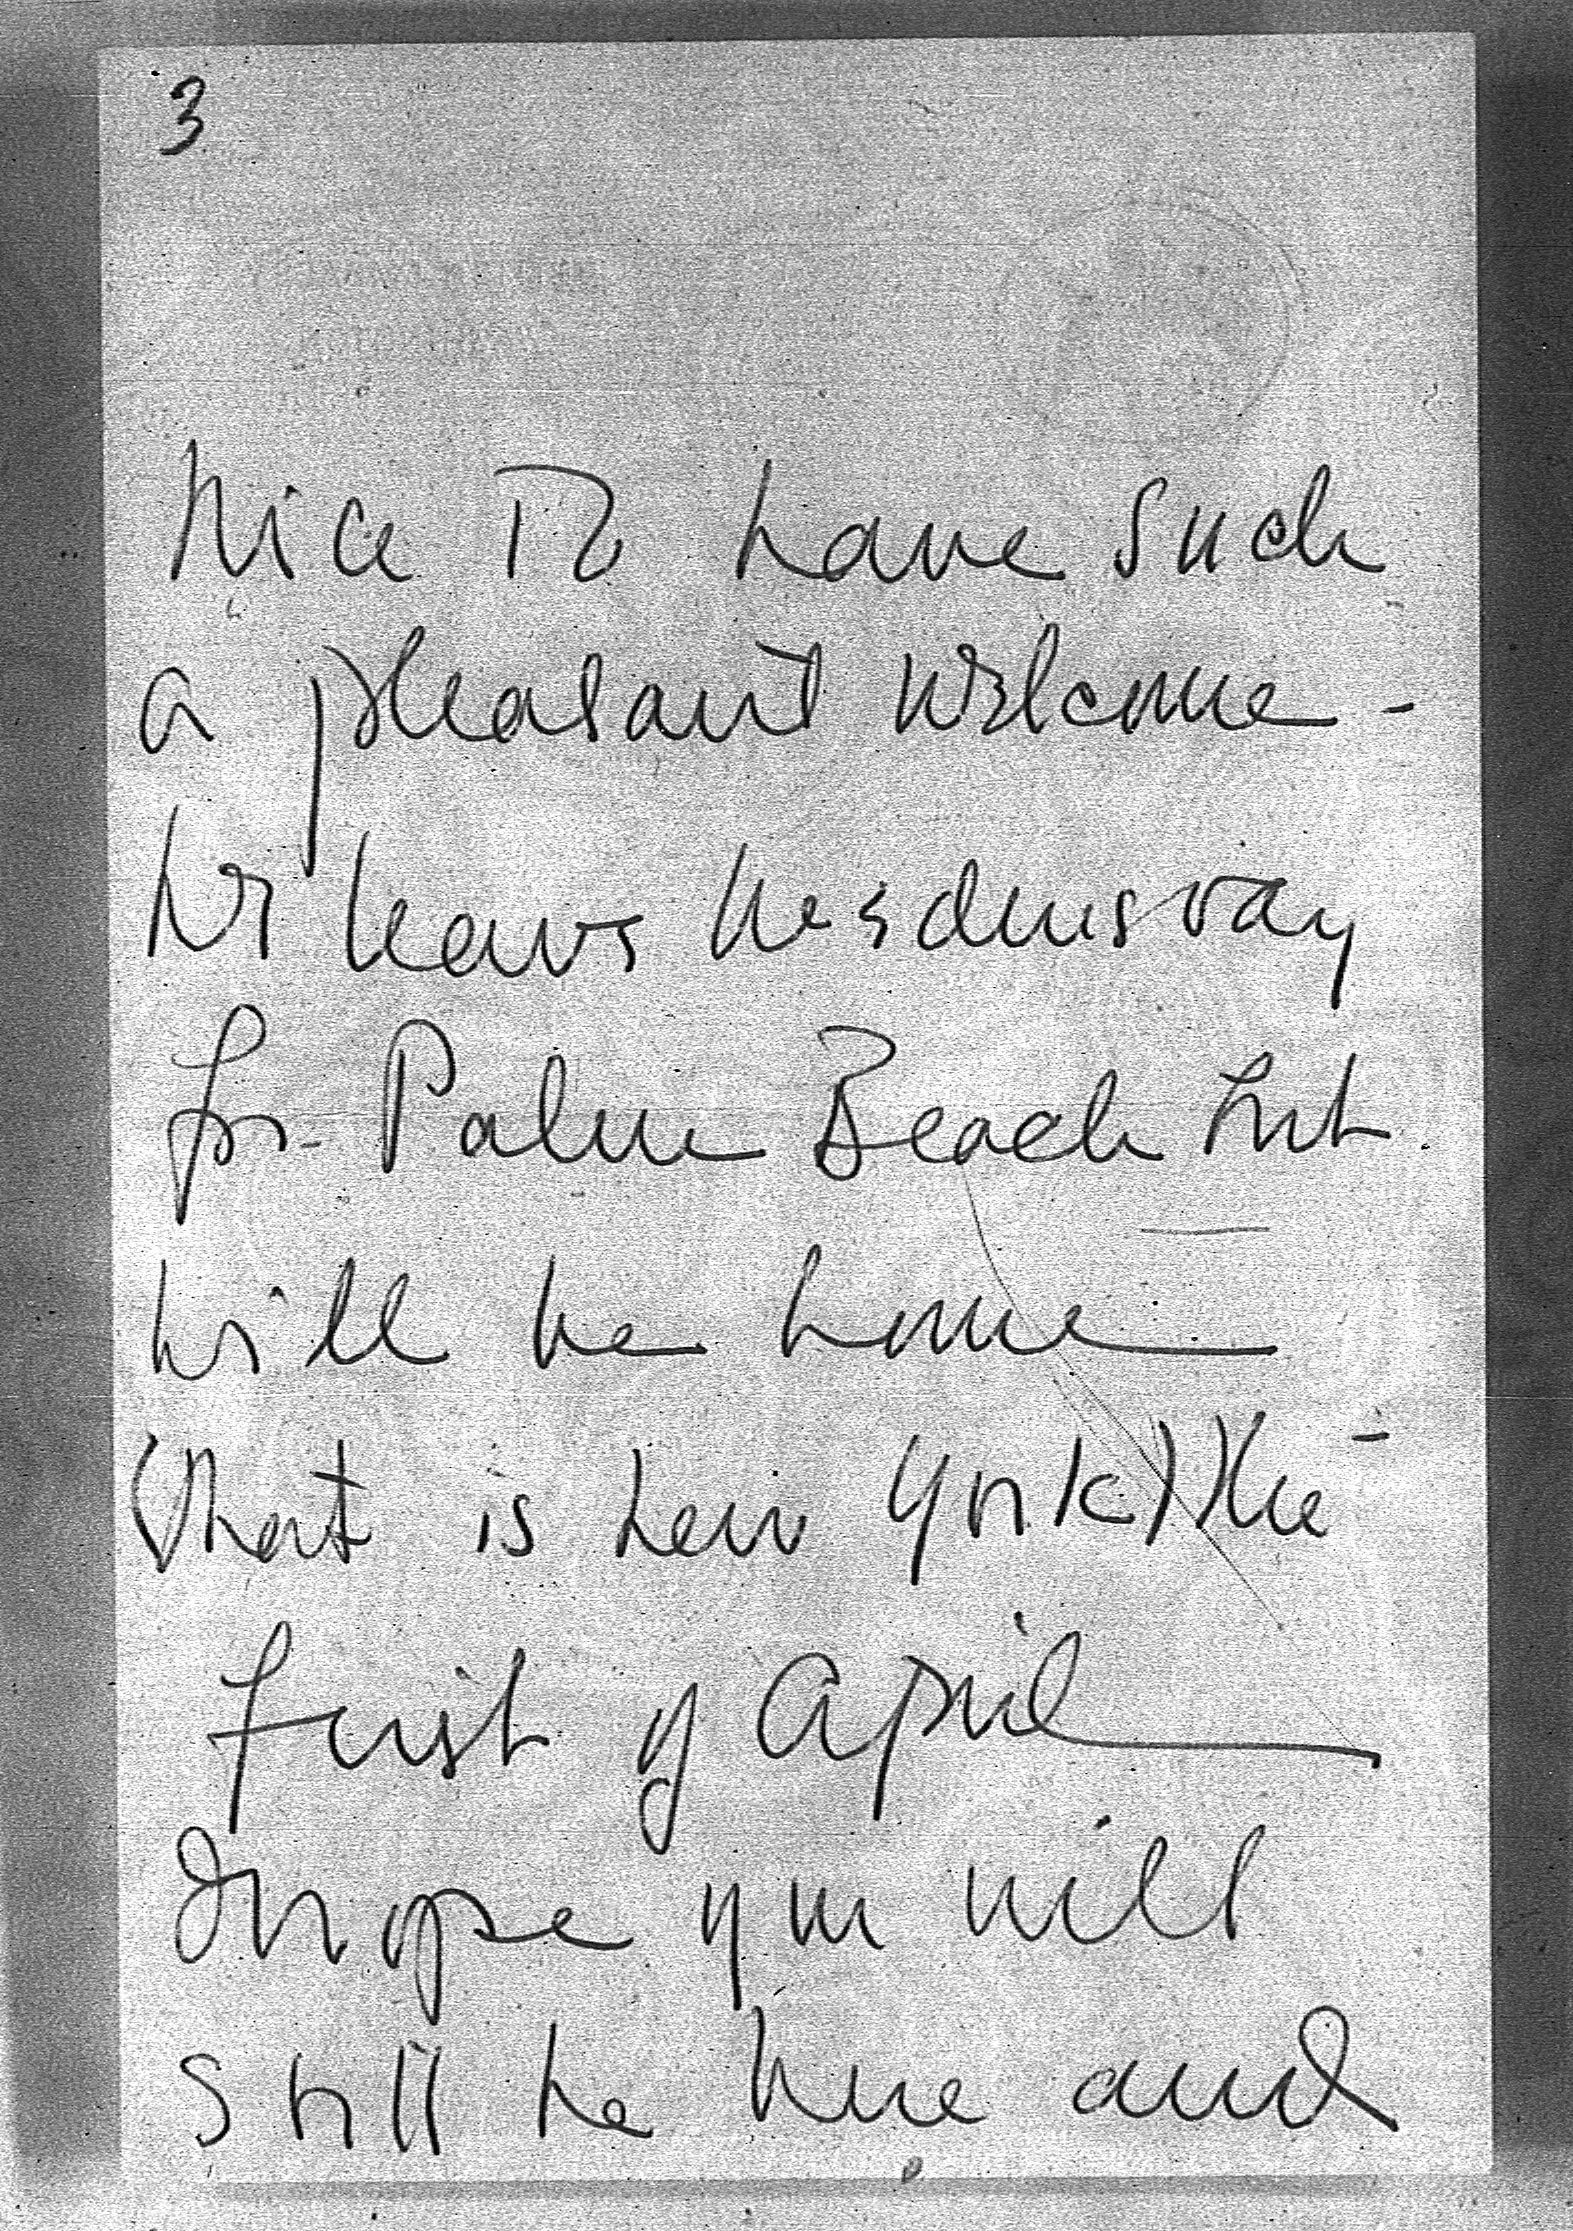 3
nice to have such
a pleasant welcome -
We leave Wednesday
for Palm Beach but
will be home
(that is New York) the -
first of April
I hope you will
still be here and